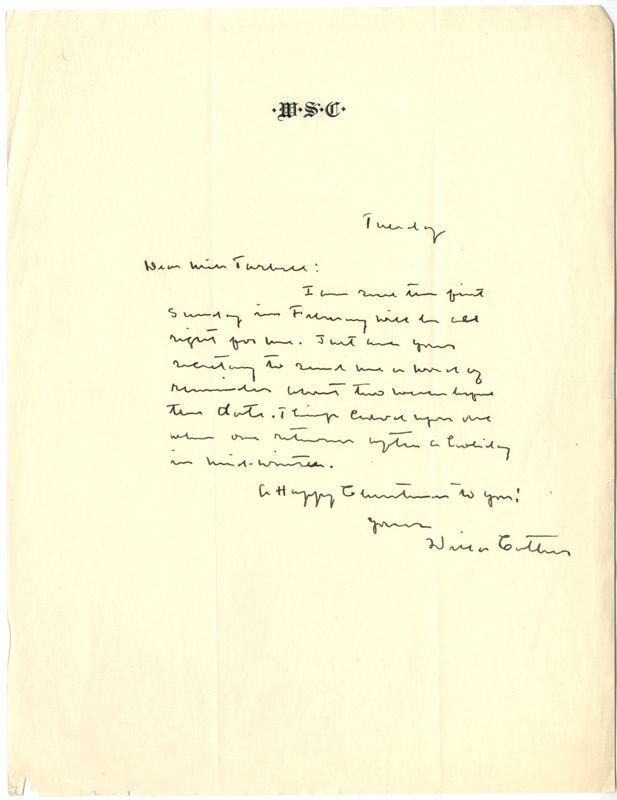 ·W·S·C·
Tuesday
Dear Miss Tarbell:
I am sure the first
Sunday in February will be all
right for me. Just ask your
secretary to send me a word of
reminder about two weeks before
the date. Things crowd upon one
when one returns after a holiday
in mid-winter.
A Happy Christmas to you!
Yours
Willa Cather